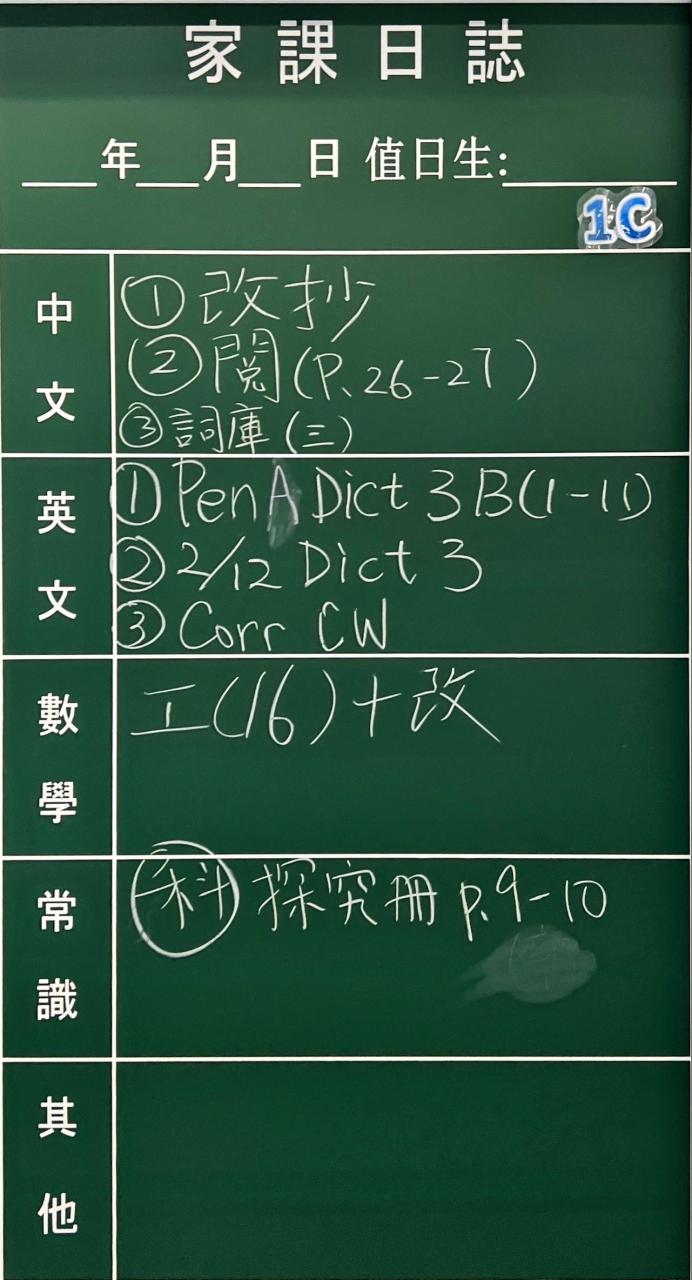 家課日誌
___年___月___日 值日生:_________
1C
中文
①改抄
②閱(P.26-27)
③詞庫(三)
英文
①PenA Dict 3B(1-11)
②2/12 Dict 3
③Corr CW
數學
工(16)+改
常識
科 探究冊 p.9-10
其他